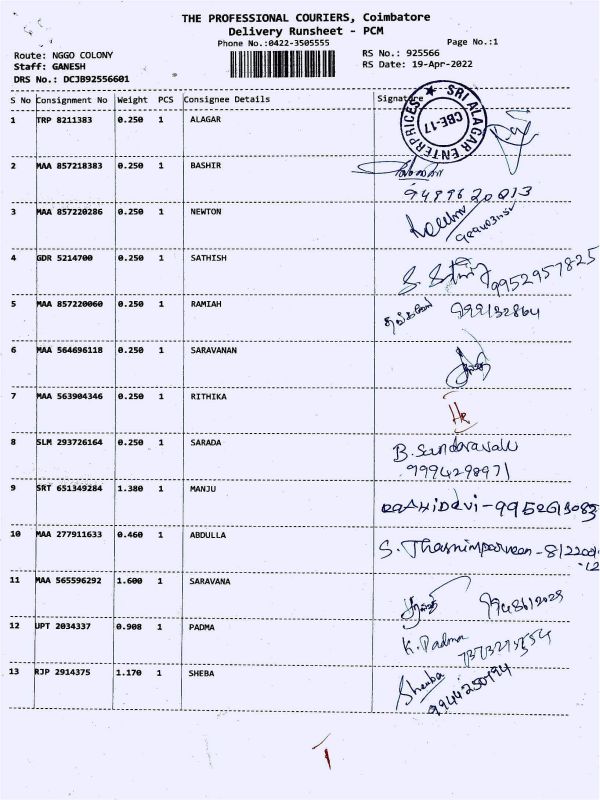 THE PROFESSIONAL COURIERS, Coimbatore
Delivery Runsheet - PCM
Phone No.:0422-3505555
Page No.:1
Route: NGGO COLONY
RS No.: 925566
Staff: GANESH
RS Date: 19-Apr-2022
DRS No.: DCJB92556601
S No Consignment No Weight PCS Consignee Details Signature
SRI ALAGAR ENTERPRICES ★ CBE-17
1 TRP 8211383 0.250 1 ALAGAR
2 MAA 857218383 0.250 1 BASHIR
3 MAA 857220286 0.250 1 NEWTON
4 GDR 5214700 0.250 1 SATHISH
9952957825
5 MAA 857220060 0.250 1 RAMIAH
6 MAA 564696118 0.250 1 SARAVANAN
7 MAA 563904346 0.250 1 RITHIKA
8 SLM 293726164 0.250 1 SARADA
B. Sundaravalli
9994298971
9 SRT 651349284 1.380 1 MANJU
10 MAA 277911633 0.460 1 ABDULLA
11 MAA 565596292 1.600 1 SARAVANA
12 UPT 2034337 0.908 1 PADMA
K. Padma
13 RJP 2914375 1.170 1 SHEBA
Sheeba
9944250794